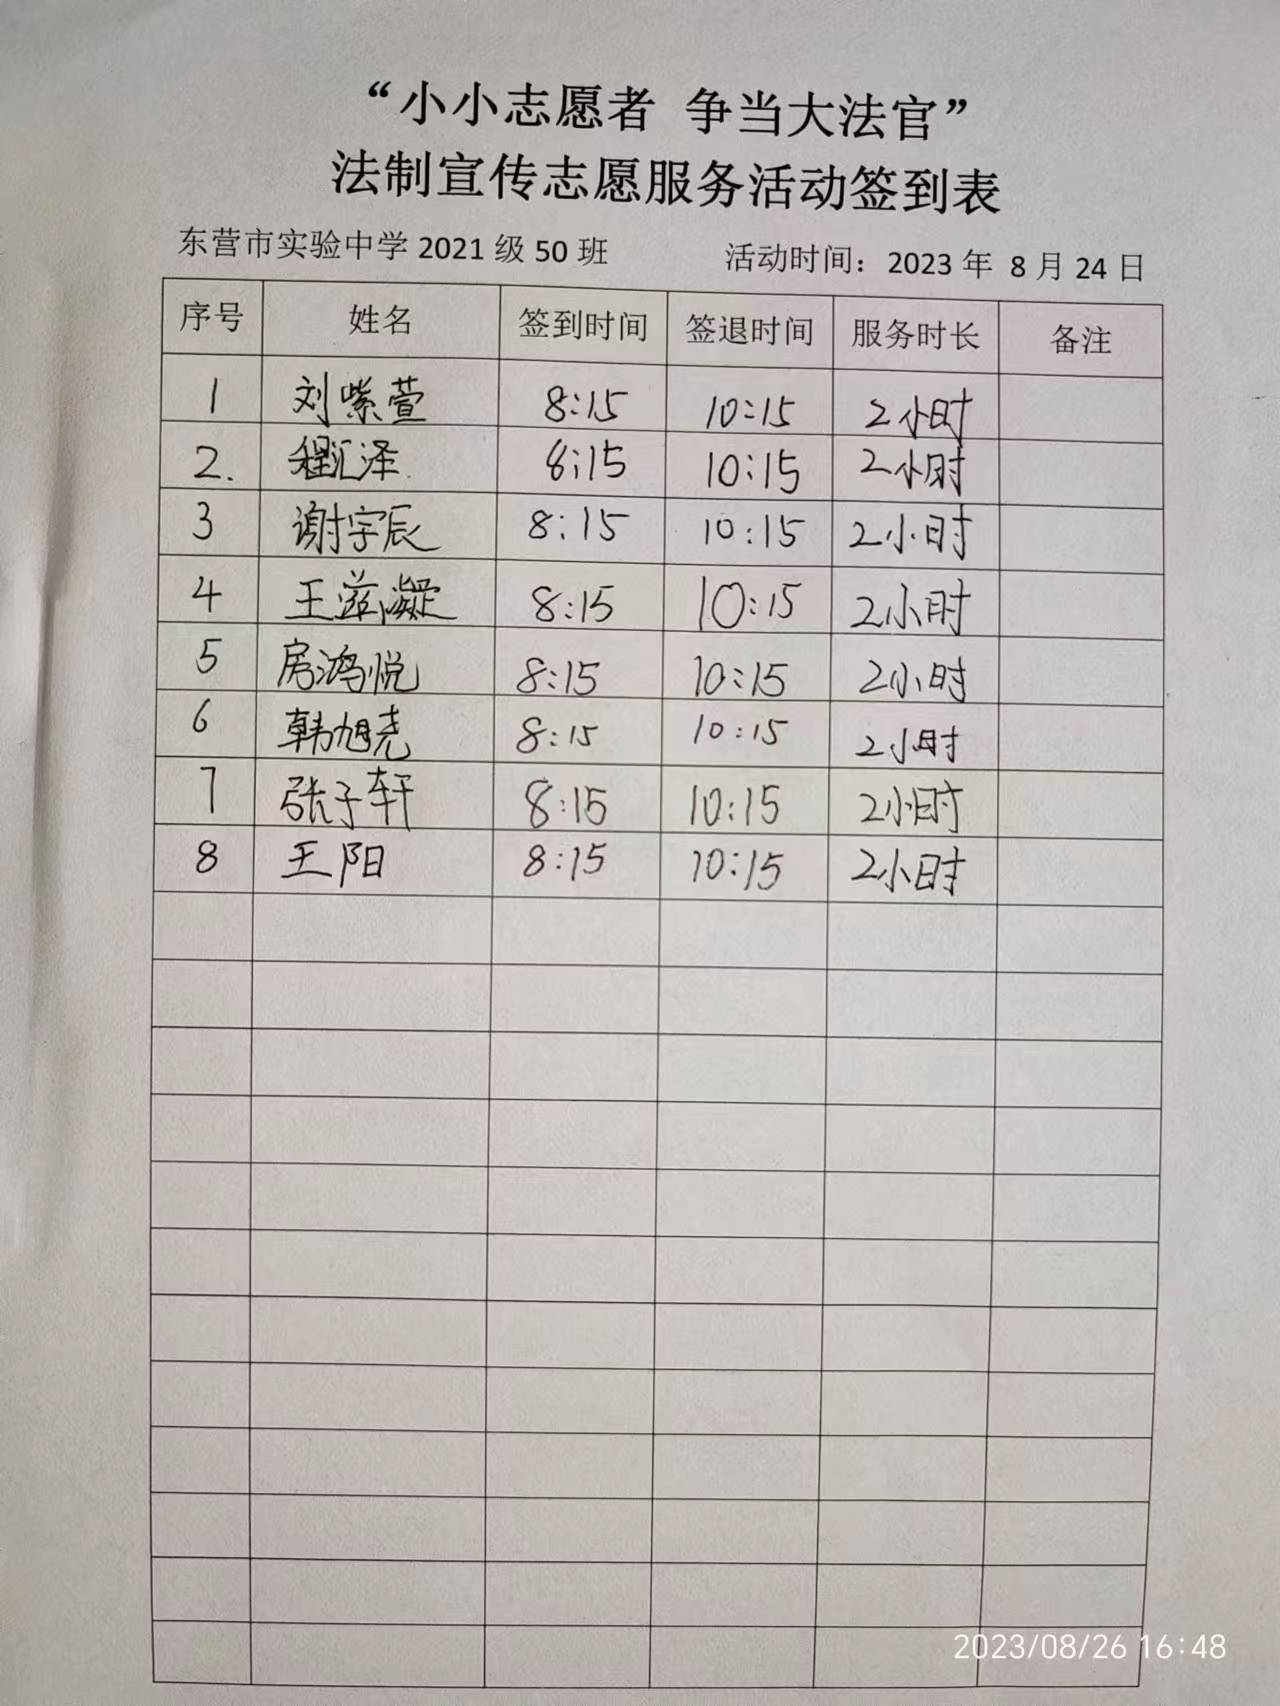 “小小志愿者 争当大法官”
法制宣传志愿服务活动签到表
东营市实验中学 2021 级 50 班 活动时间：2023 年 8 月 24 日
序号 姓名 签到时间 签退时间 服务时长 备注
1 刘紫萱 8:15 10:15 2小时
2. 程汇泽 8:15 10:15 2小时
3 谢宇辰 8:15 10:15 2小时
4 王滋凝 8:15 10:15 2小时
5 房鸿悦 8:15 10:15 2小时
6 韩旭尧 8:15 10:15 2小时
7 张子轩 8:15 10:15 2小时
8 王阳 8:15 10:15 2小时
2023/08/26 16:48